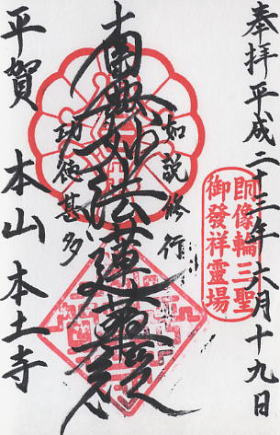 奉拝 平成二十三年六月十九日
朗像輪三聖
御發祥靈場
如説修行
南無妙法蓮華經
功徳甚多
平賀 本山 本土寺